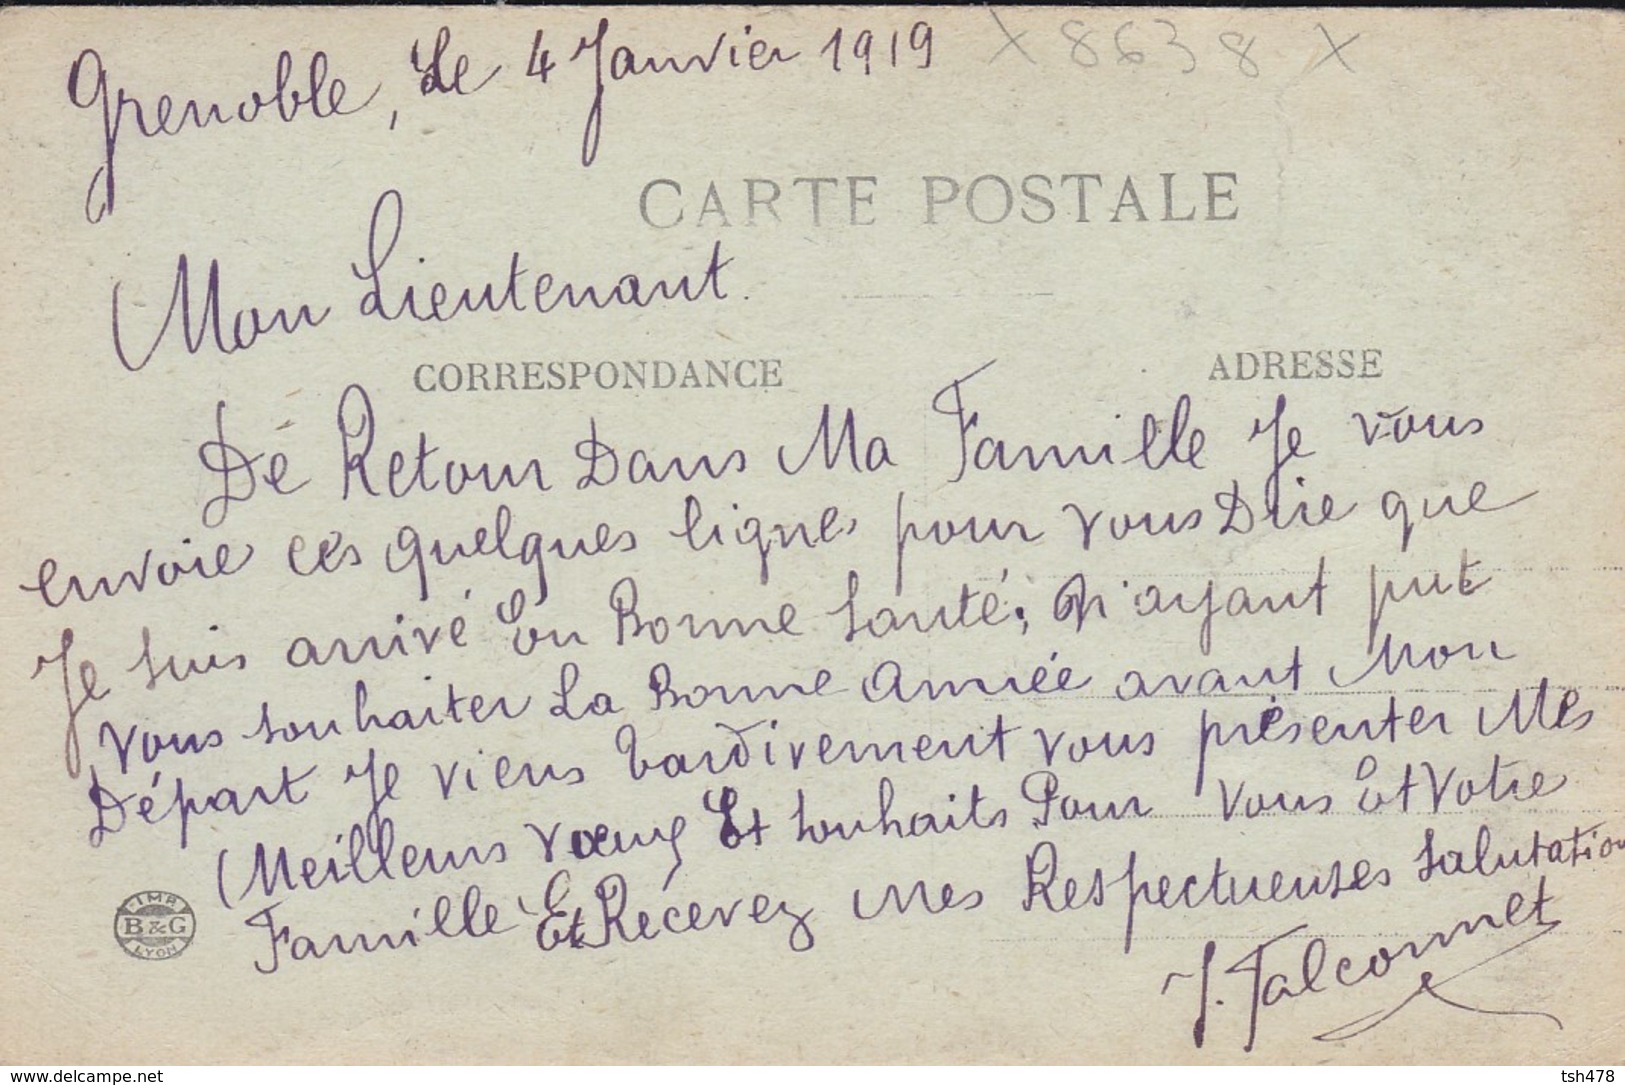 Grenoble, Le 4 Janvier 1919 X 8638 X
CARTE POSTALE
Mon Lieutenant.
CORRESPONDANCE ADRESSE
Dé Retour Dans Ma Famille Je vous
envoie ces quelques lignes pour vous Dire que
Je suis arrivé En Bonne santé; N'ayant put
vous souhaiter La Bonne Année avant Mon
Départ Je viens tardivement vous présenter Mes
Meilleurs vœux Et souhaits Pour Vous Et Votre
Famille Et Récevez Mes Respectueuses salutation
J. Falconnet
IMP. B & G LYON
www.delcampe.net tsh478